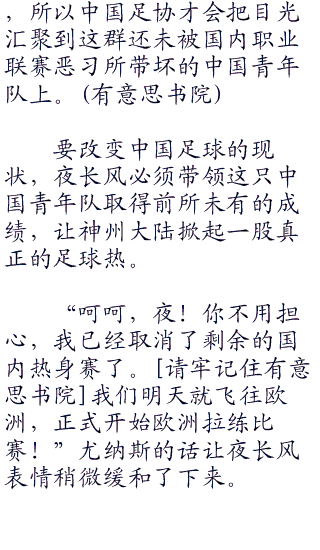 ，所以中国足协才会把目光
汇聚到这群还未被国内职业
联赛恶习所带坏的中国青年
队上。（有意思书院）
要改变中国足球的现
状，夜长风必须带领这只中
国青年队取得前所未有的成
绩，让神州大陆掀起一股真
正的足球热。
“呵呵，夜！你不用担
心，我已经取消了剩余的国
内热身赛了。[请牢记住有意
思书院]我们明天就飞往欧
洲，正式开始欧洲拉练比
赛！”尤纳斯的话让夜长风
表情稍微缓和了下来。